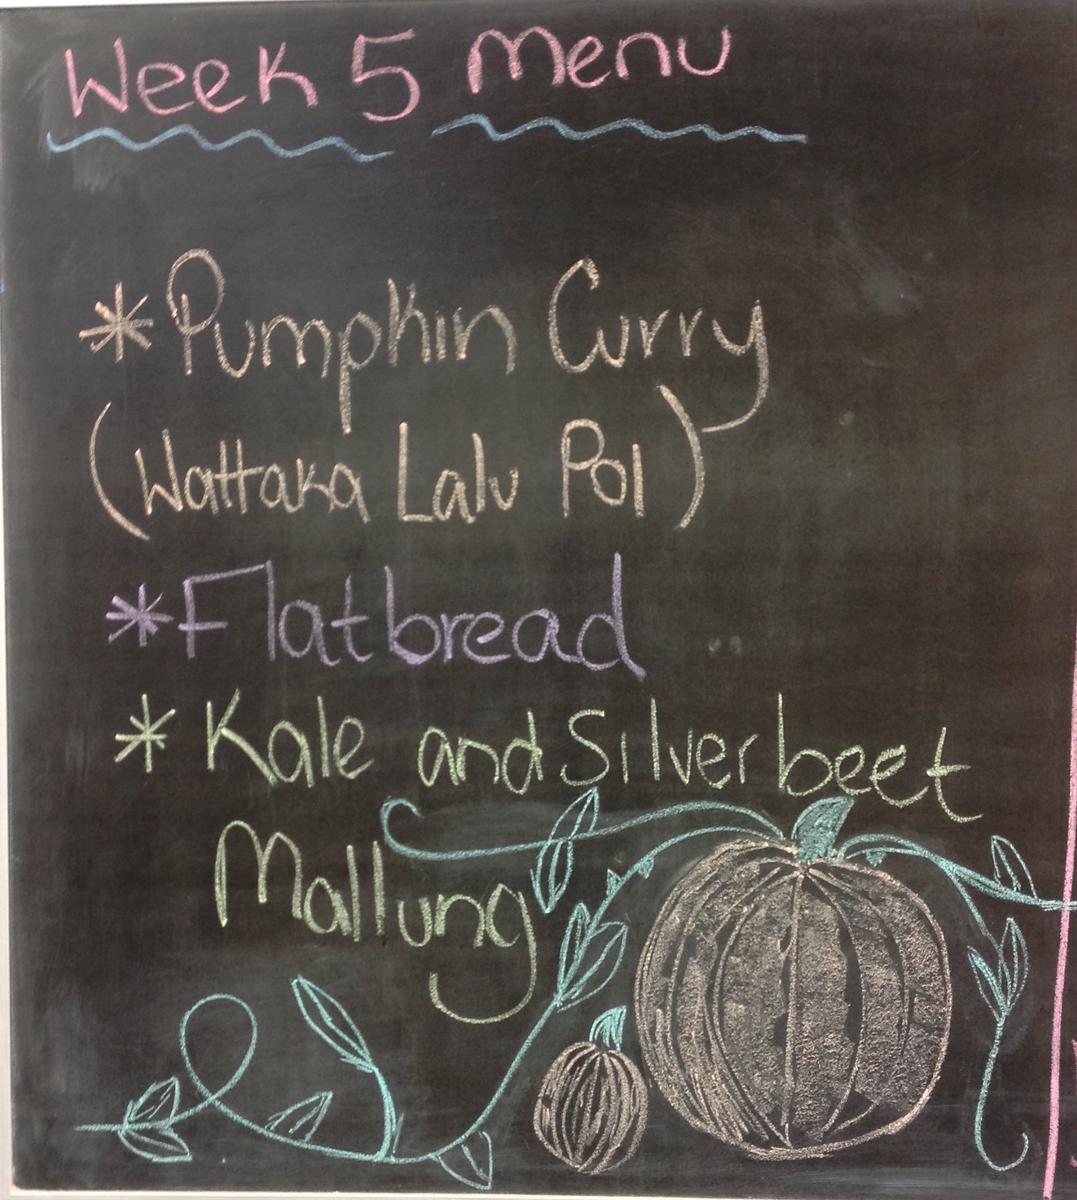 Week 5 Menu
* Pumpkin Curry
(Wattaka Lalu Pol)
* Flatbread
* Kale and Silverbeet
Mallung